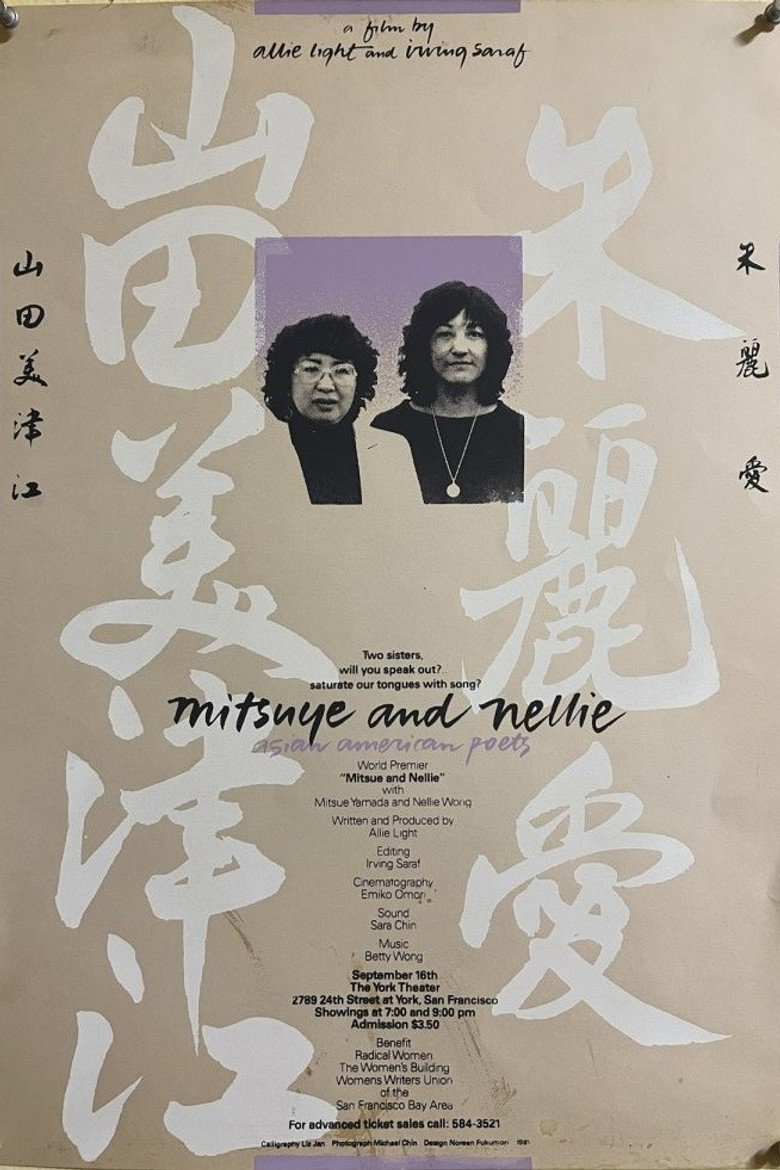 a film by
allie light and irving saraf
山田美津江
朱麗愛
山田美津江
朱麗愛
Two sisters,
will you speak out?
saturate our tongues with song?
mitsuye and nellie
asian american poets
World Premier
“Mitsue and Nellie”
with
Mitsue Yamada and Nellie Wong
Written and Produced by
Allie Light
Editing
Irving Saraf
Cinematography
Emiko Omori
Sound
Sara Chin
Music
Betty Wong
September 16th
The York Theater
2789 24th Street at York, San Francisco
Showings at 7:00 and 9:00 pm
Admission $3.50
Benefit
Radical Women
The Women's Building
Womens Writers Union
of the
San Francisco Bay Area
For advanced ticket sales call: 584-3521
Calligraphy Liz Jan Photograph Michael Chin Design Noreen Fukumori 1981